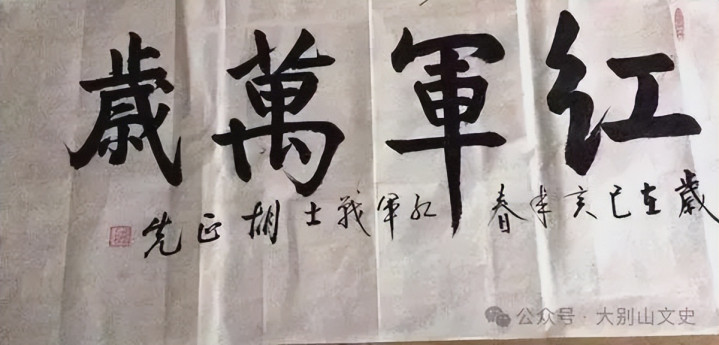 红軍萬歲
歲在己亥年春 红軍战士胡正先
公众号·大别山文史